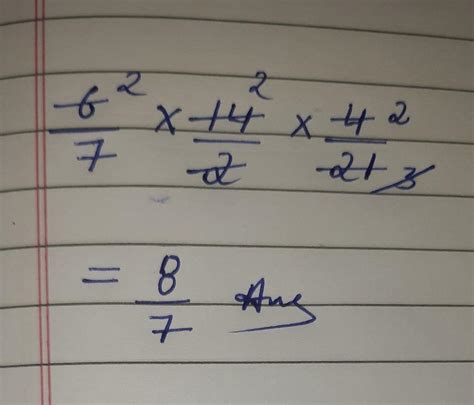 6² / 7 × 14² / 2 × 4² / 21 3
= 8 / 7 Ans